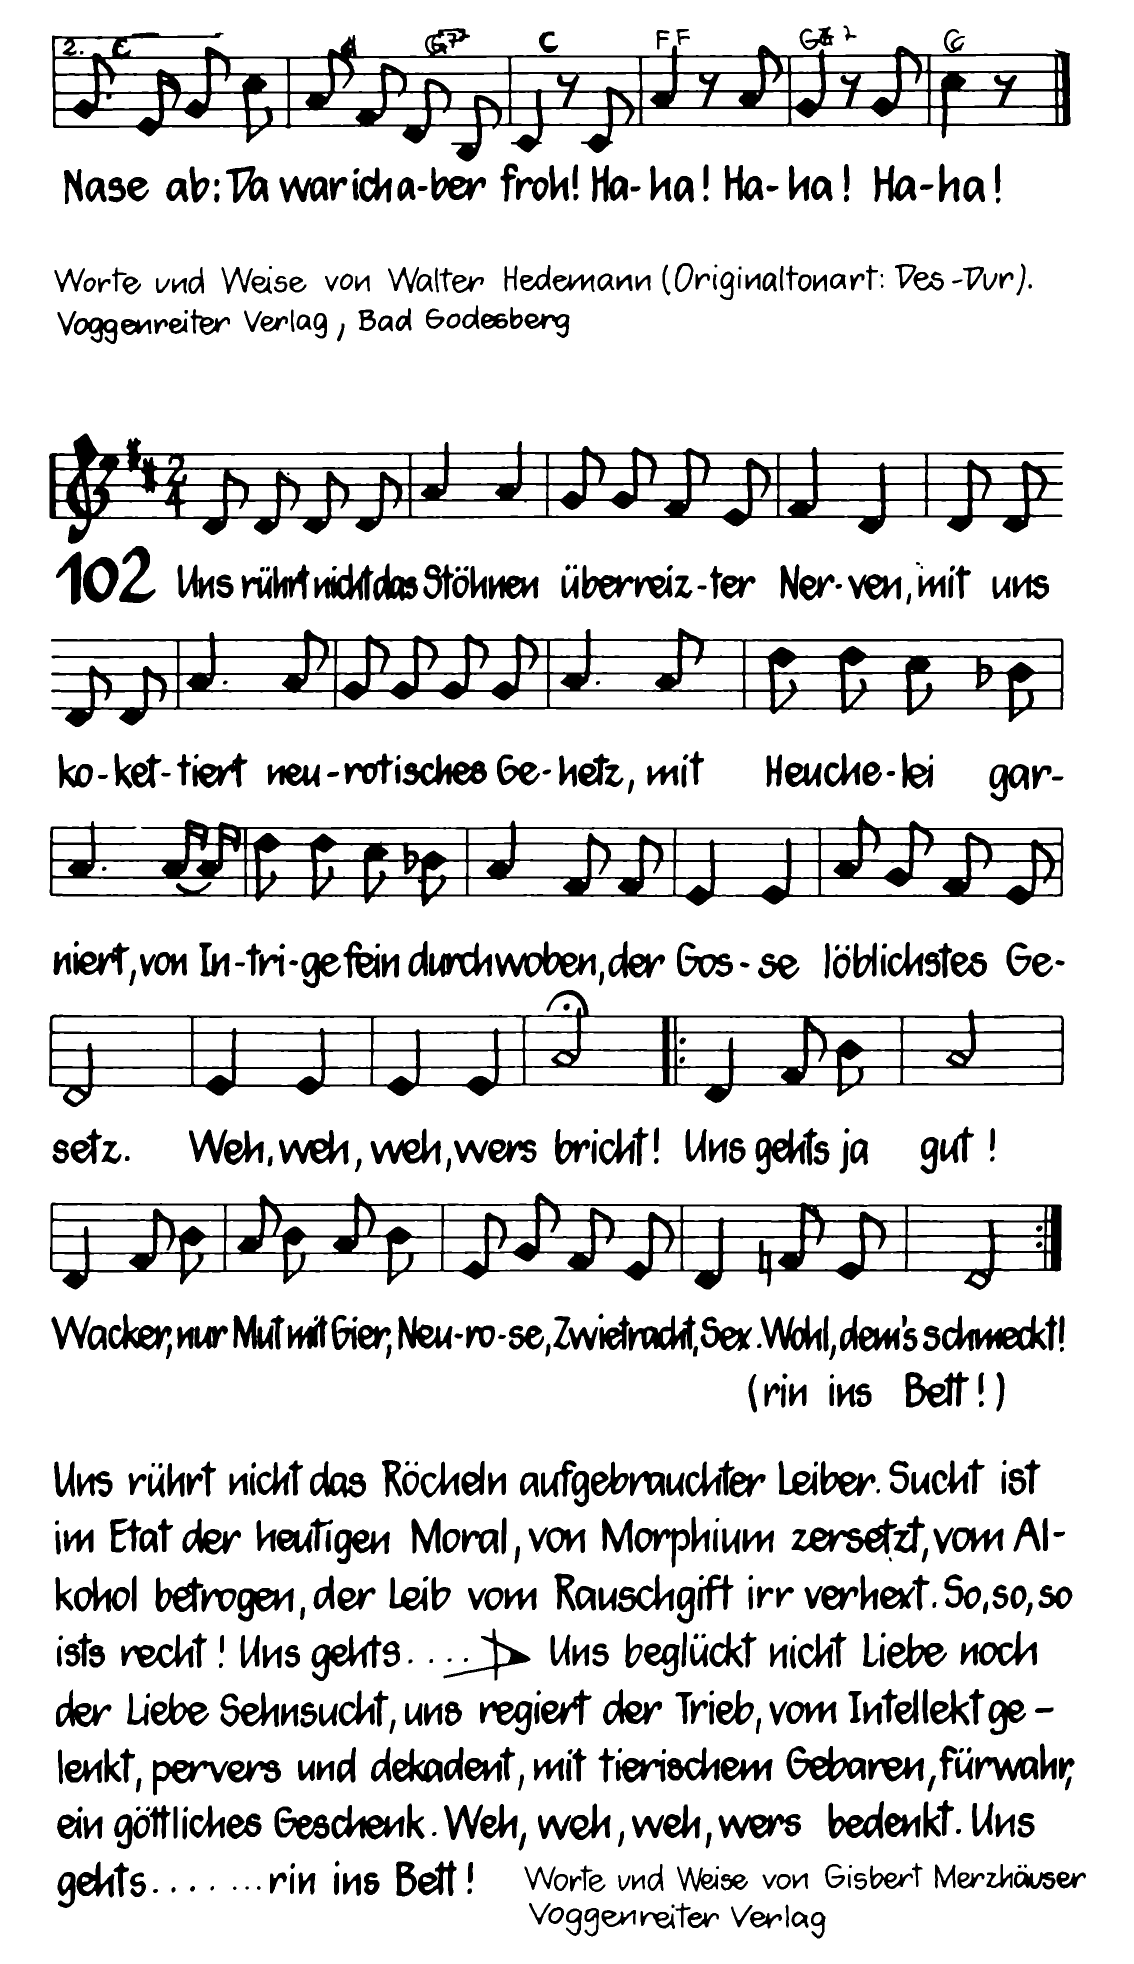 2. C G7 C F F G7 C
Nase ab: Da war ich a-ber froh! Ha-ha! Ha-ha! Ha-ha!
Worte und Weise von Walter Hedemann (Originaltonart: Des-Dur).
Voggenreiter Verlag, Bad Godesberg
2
4
102 Uns rührt nicht das Stöhnen überreiz-ter Ner-ven, mit uns
ko-ket-tiert neu-rotisches Ge-hetz, mit Heuche-lei gar-
niert, von In-tri-ge fein durchwoben, der Gos-se löblichstes Ge-
setz. Weh, weh, weh, wers bricht! Uns gehts ja gut!
Wacker, nur Mut mit Gier, Neu-ro-se, Zwietracht, Sex. Wohl, dem's schmeckt!
(rin ins Bett!)
Uns rührt nicht das Röcheln aufgebrauchter Leiber. Sucht ist
im Etat der heutigen Moral, von Morphium zersetzt, vom Al-
kohol betrogen, der Leib vom Rauschgift irr verhext. So, so, so
ists recht! Uns gehts.... Uns beglückt nicht Liebe noch
der Liebe Sehnsucht, uns regiert der Trieb, vom Intellekt ge-
lenkt, pervers und dekadent, mit tierischem Gebaren, fürwahr,
ein göttliches Geschenk. Weh, weh, weh, wers bedenkt. Uns
gehts........rin ins Bett! Worte und Weise von Gisbert Merzhäuser
Voggenreiter Verlag